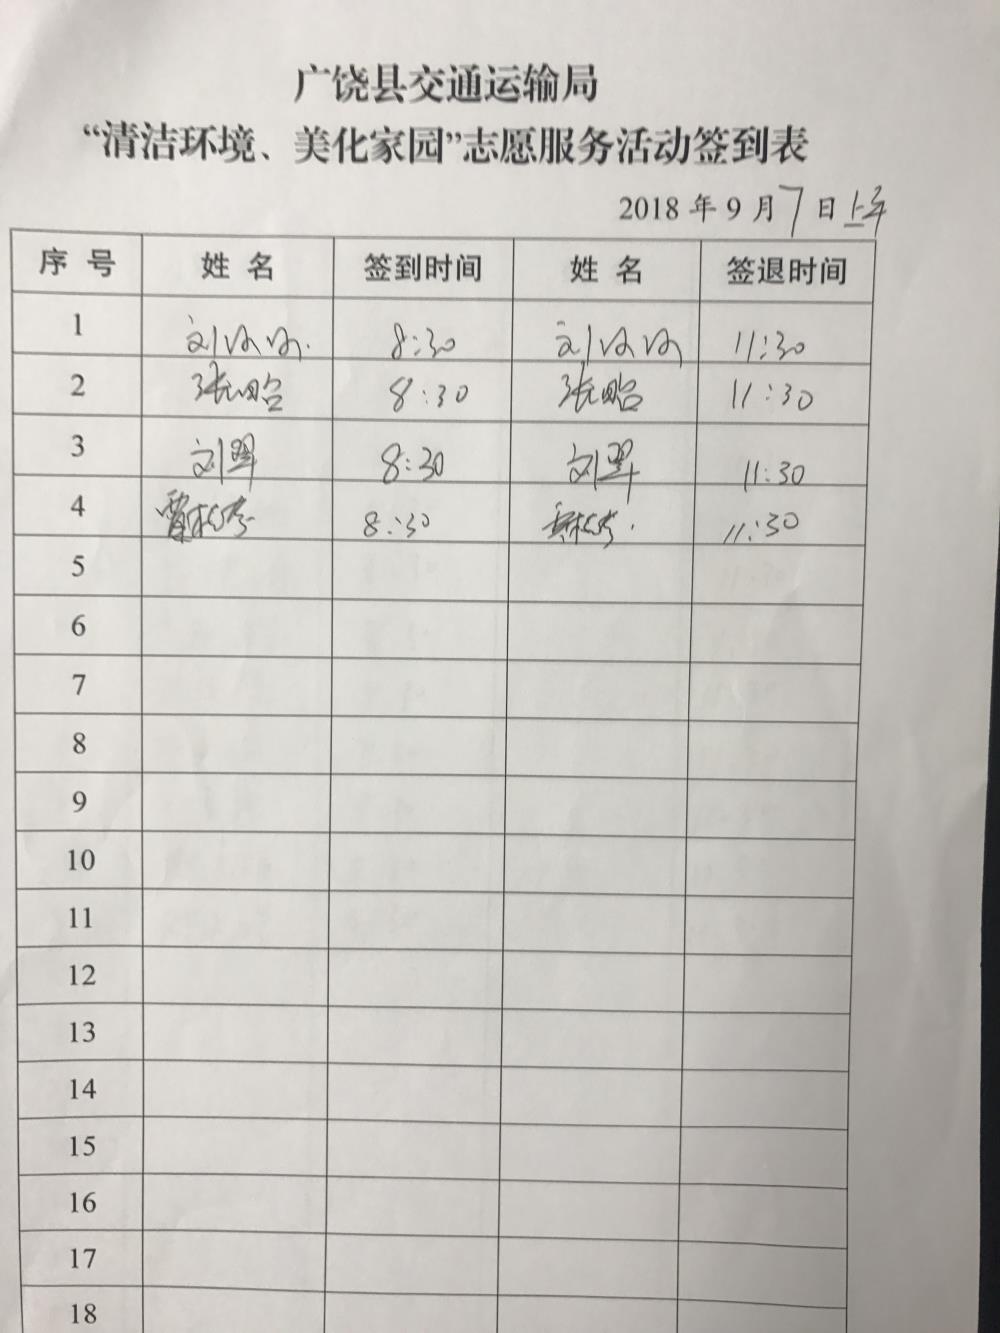 广饶县交通运输局
“清洁环境、美化家园”志愿服务活动签到表
2018 年 9 月 7 日 上午
序 号 姓 名 签到时间 姓 名 签退时间
1 刘 8:30 刘 11:30
2 张昭 8:30 张昭 11:30
3 刘翠 8:30 刘翠 11:30
4 8:30 11:30
5
6
7
8
9
10
11
12
13
14
15
16
17
18